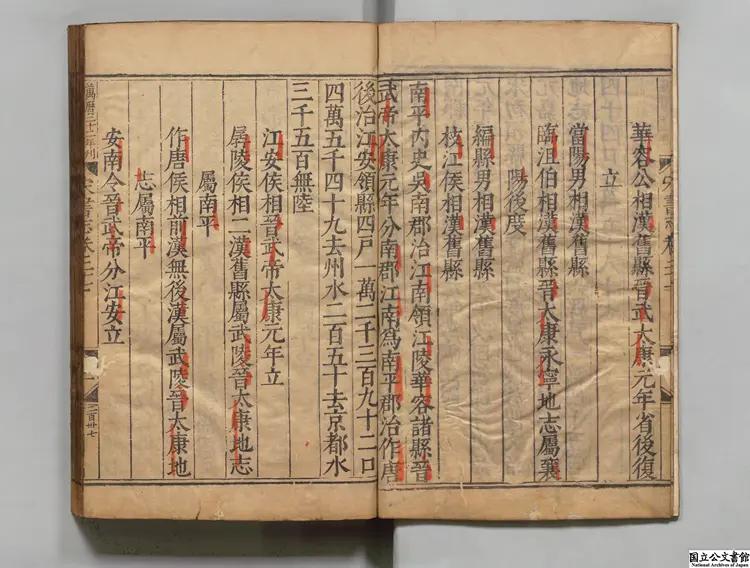 華容公相漢舊縣晉武太康元年省後復
立
當陽男相漢舊縣
臨沮伯相漢舊縣晉太康永寧地志屬襄
陽後度
編縣男相漢舊縣
枝江侯相漢舊縣
南平內史吳南郡治江南領江陵華容諸縣晉
武帝太康元年分南郡江南爲南平郡治作唐
後治江安領縣四戸一萬二千三百九十二口
四萬五千四十九去州水二百五十去京都水
三千五百無陸
江安侯相晉武帝太康元年立
孱陵侯相二漢舊縣屬武陵晉太康地志
屬南平
作唐侯相前漢無後漢屬武陵晉太康地
志屬南平
安南令晉武帝分江安立
萬曆二十二年刊
宋書志卷二十七
二百卅七
国立公文書館
National Archives of Japan